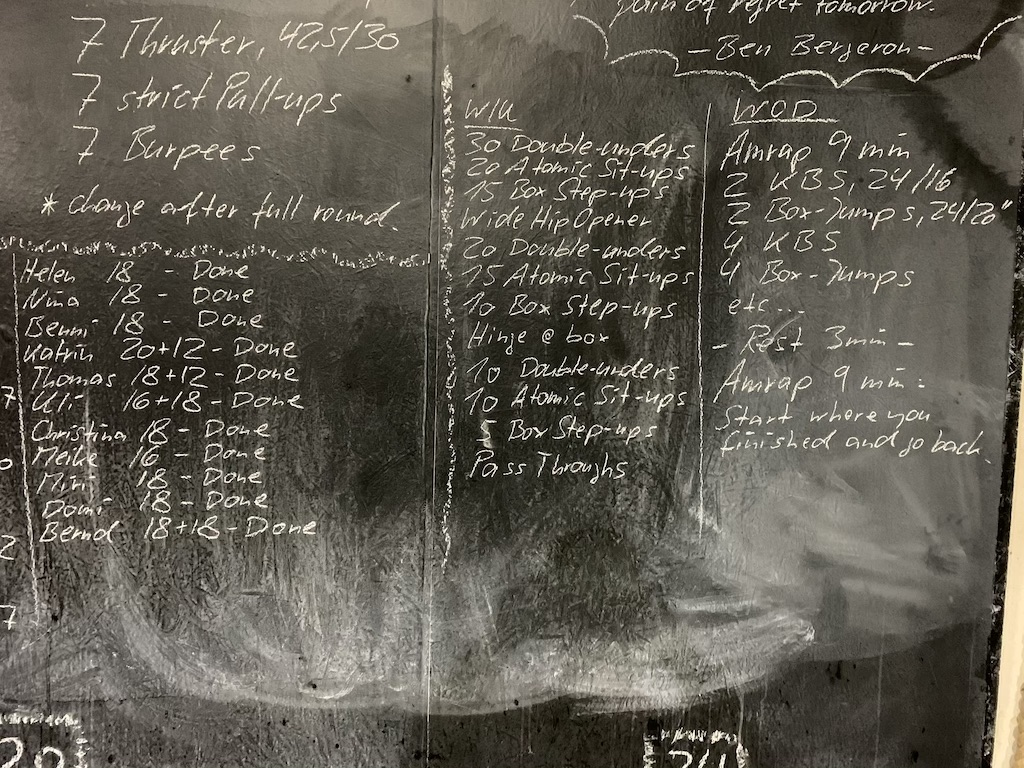 7 Thruster, 42,5/30
7 strict Pull-ups
7 Burpees
* change after full round.
Helen 18 - Done
Nina 18 - Done
Benni 18 - Done
Katrin 20+12 - Done
Thomas 18+12 - Done
Uli 16+18 - Done
Christina 18 - Done
Meike 16 - Done
Mini 18 - Done
Domi 18 - Done
Bernd 18+18 - Done
7
0
2
7
20
pain of regret tomorrow.
- Ben Bergeron -
W/U
30 Double-unders
20 Atomic Sit-ups
15 Box Step-ups
Wide Hip Opener
20 Double-unders
15 Atomic Sit-ups
10 Box Step-ups
Hinge @ box
10 Double-unders
10 Atomic Sit-ups
5 Box Step-ups
Pass Throughs
WOD
Amrap 9 min
2 KBS, 24/16
2 Box-Jumps, 24/20"
4 KBS
4 Box-Jumps
etc...
- Rest 3min -
Amrap 9 min:
Start where you
finished and go back.